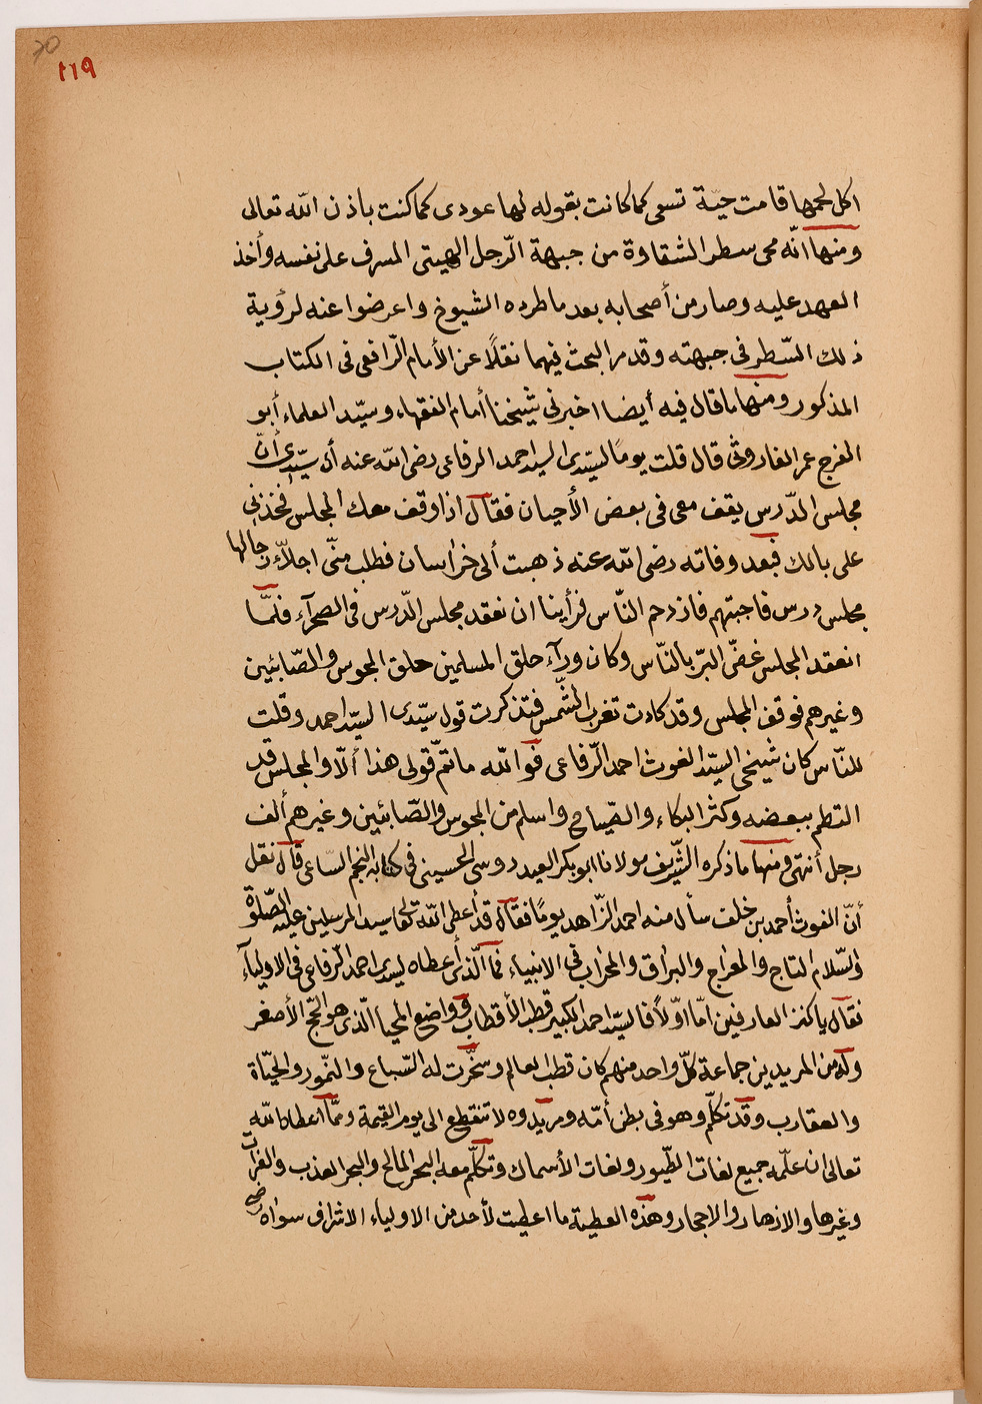 ١١٩
اكل لحمها قامت حيّة تسعى كما كانت بقوله لها عودى كما كنت باذن الله تعالى
ومنها انّه محى سطر الشقاوة من جبهة الرّجل الهيتى المسرف على نفسه وأخذ
العهد عليه وصار من أصحابه بعد ما طرده الشيوخ واعرضوا عنه لرؤية
ذلك السّطر فى جبهته وقد مر البحث فيهما نقلاً عن الأمام الرّافعى فى الكتاب
المذكور ومنها ما قال فيه أيضا اخبرنى شيخنا أمام الفقهاء وسيّد العلماء أبو
الفرج عمر الفاروثى قال قلت يومًا لسيّدى السيد احمد الرفاعى رضى الله عنه أى سيّدى أنّ
مجلس الدّرس يقف معى فى بعض الأحيان فقال اذا وقف معك المجلس فخذنى
على بالك فبعد وفاته رضى الله عنه ذهبت ألى خراسان فطلب منّى اجلاّء رجالها
مجلس درس فاجبتهم فازدحم النّاس فرأينا ان نعقد مجلس الدّرس فى الصحرآء فلمّا
انعقد المجلس غصّ البرّ بالنّاس وكان ورآء حلق المسلمين حلق المجوس والصّابئين
وغيرهم فوقف المجلس وقد كادت تغرب الشّمس فتذكرت قول سيّدى السيّد احمد وقلت
للنّاس كان شيخى السيّد الغوث احمد الرّفاعى فو الله ما تمّ قولى هذا ألاّ والمجلس قد
التطم ببعضه وكثر البكاء والصّياح واسلم من المجوس والصّابئين وغيرهم ألف
رجل أنتهى ومنها ما ذكره الشّريف مولانا ابو بكر العيدروسى الحسينى فى كتابه النجم السّاعى قال نقل
أنّ الغوث أحمد بن خلف سأل منه احمد الزّاهد يومًا فقال قد أعطى الله تعالى سيد المرسلين عليه الصّلوة
والسّلام التاج والمعراج والبراق والمحراب فى الانبياء فما الّذى أعطاه لسيدى احمد الرّفاعى فى الاوليآء
فقال يا كنز العارفين امّا اوّلاً فالسيّد احمد الكبير قطب الأقطاب وواضع المحيا الّذى هو الحّج الأصغر
وله من المريدين جماعة كلّ واحد منهم كان قطب العالم وسخّرت له السّباع والنّمور والحيّاة
والعقارب وقد تكلّم وهو فى بطن أمّه ومريدوه لا تنقطع الى يوم القيمة وممّا أعطاه الله
تعالى ان علّمه جميع لغات الطّيور ولغات الأسماك وتكلّم معه البحر المالح والبحر العذب والفرات
وغيرها والازهار والاحجار وهذه العطية ما اعطيت لأحد من الاولياء الاشراف سواه